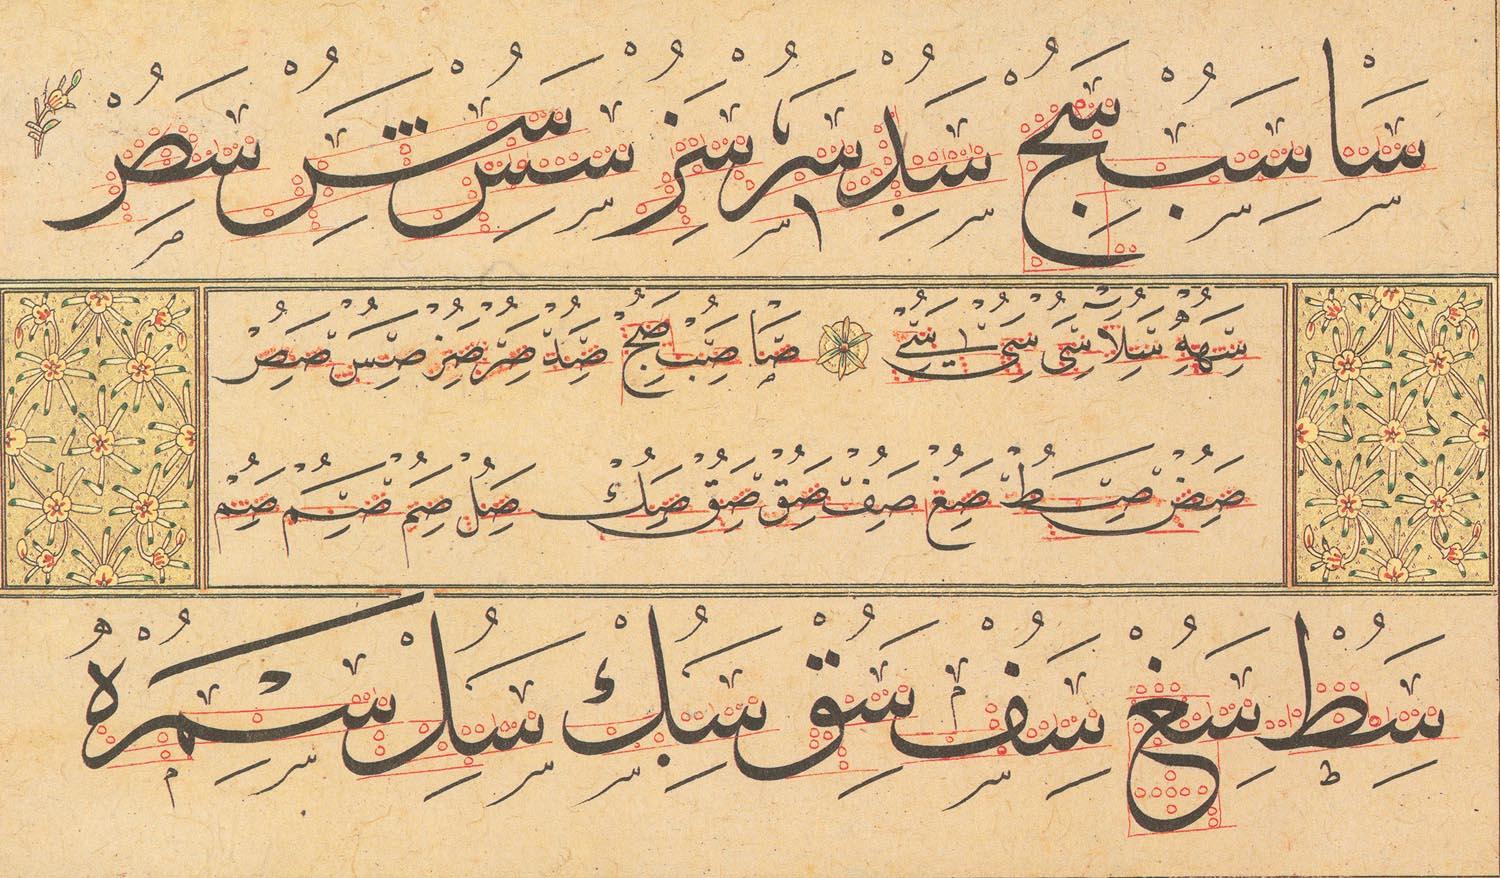 سا سب سج سد سر سز سس سش سص
سهه سلا سى سى سى صا صب صج صد صر صز صس صص
صض صط صغ صف صق صق صك صل صم صم صم
سط سغ سف سق سك سل سمره